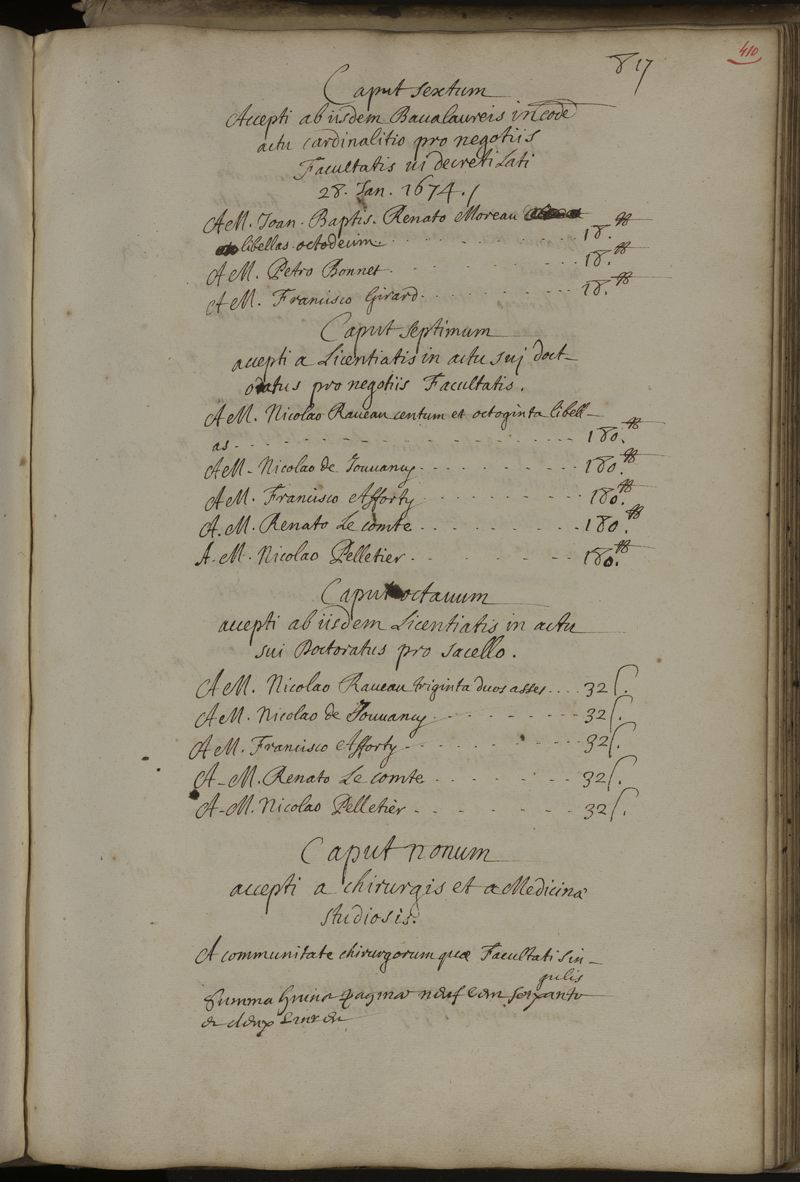 410
817
Caput sextum
Accepti ab iisdem Baccalaureis in eodē
actu cardinalitio pro negotiis
Facultatis vi decreti lati
28. Jan. 1674.
A M. Joan. Baptis. Renato Moreau
libellas octodecim 18.#
A M. Petro Bonnet 18.#
A M. Francisco Girard 18.#
Caput septimum
accepti a Licentiatis in actu suj doct-
oratus pro negotiis Facultatis.
A M. Nicolao Raueau centum et octoginta libell-
as 180.#
A M. Nicolao de Jouuancy 180.#
A M. Francisco Afforty 180.#
A. M. Renato Le comte 180.#
A. M. Nicolao Pelletier 180.#
Caput octauum
accepti ab iisdem Licentiatis in actu
sui Doctoratus pro sacello.
A M. Nicolao Raueau triginta duos asses 32 ſ.
A M. Nicolao de Jouuancy 32 ſ.
A M. Francisco Afforty 32 ſ.
A M. Renato Le comte 32 ſ.
A M. Nicolao Pelletier 32 ſ.
Caput nonum
accepti a chirurgis et a Medicinæ
studiosis.
A communitate chirurgorum quæ Facultati sin-
gulis
Summa huius paginæ neuf cen soixante
et deux